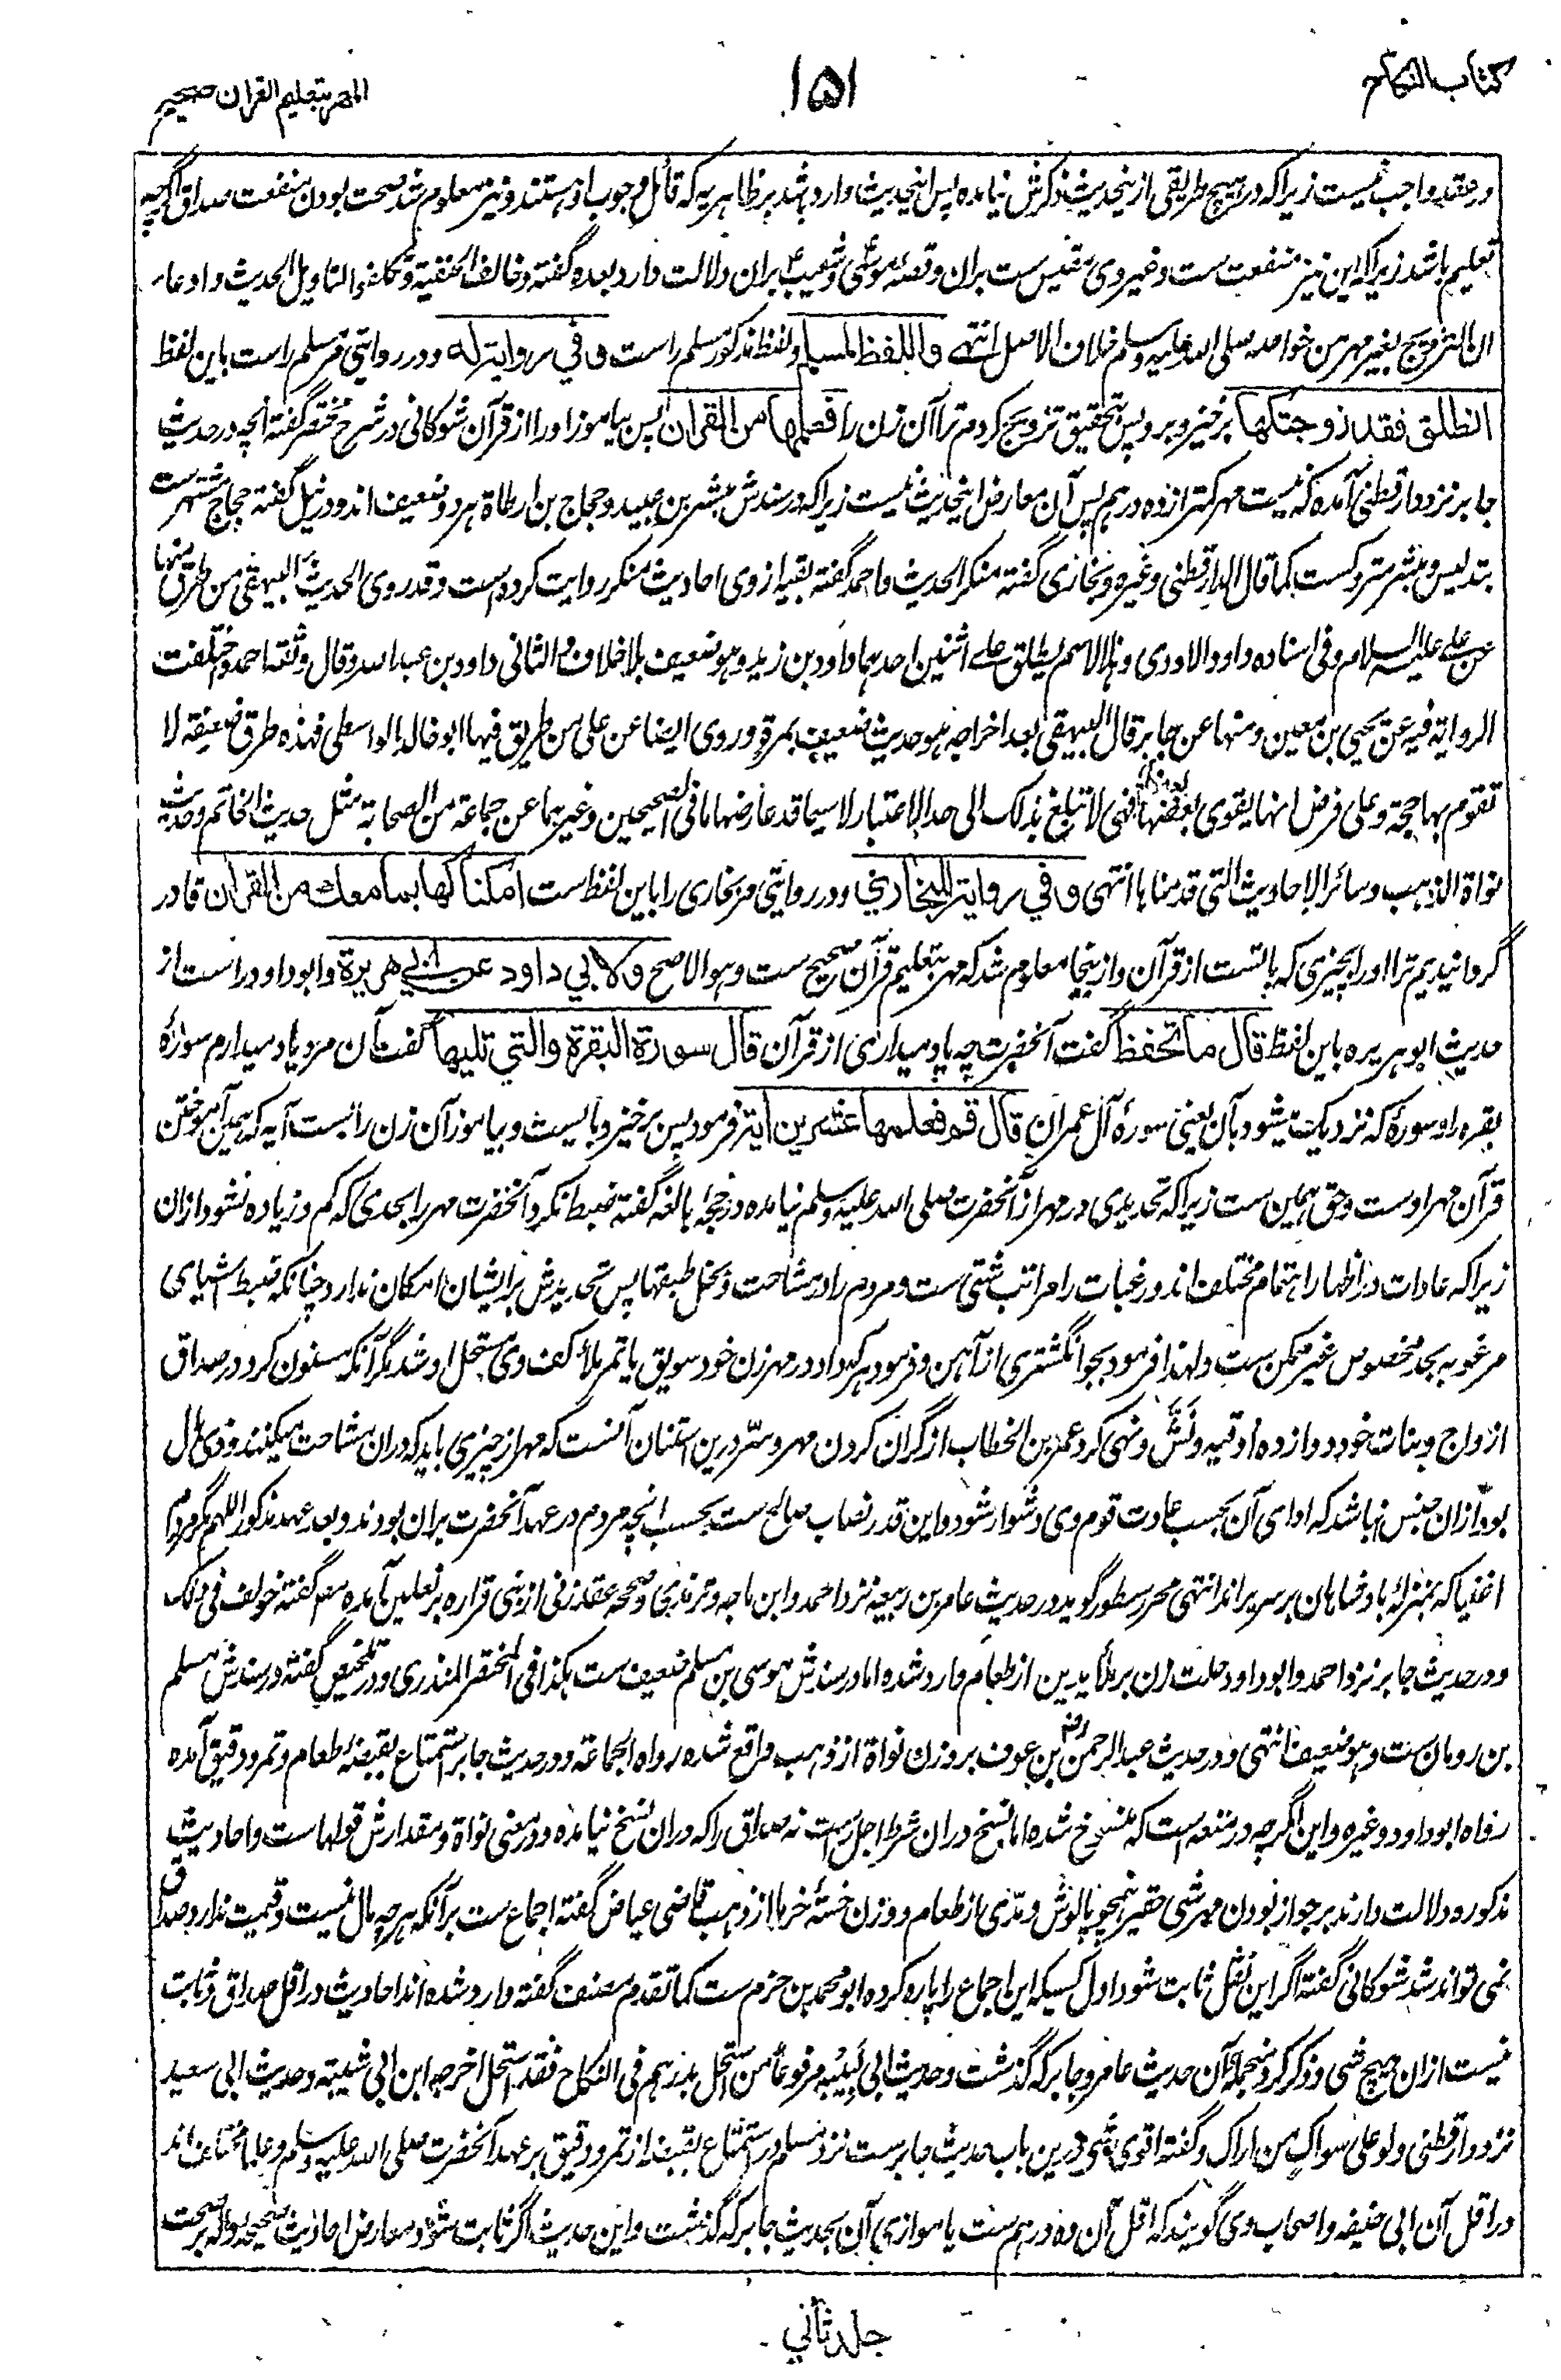 كتاب النكاح
١٥١
المهر بتعليم القرآن صحيح
در عقد واجب نیست زیرا که در هیچ طریقی از ینحدیث ذکرش نیامده پس اینحدیث وارد شد بر ظاهریه که قائل وجوب او هستند و نیز معلوم شد صحت بودن منفعت صداق اگرچه
تعلیم باشد زیرا که این نیز منفعت ست و غیر وی مقیس ست بران و قصهٔ موسی و شعیب بران دلالت دارد بعده گفته و خالف الحنفیة و تکلفوا لتاویل الحدیث و ادعاء
ان التزویج بغیر مهر من خواصه صلی الله علیه وسلم خلاف الاصل انتهی واللفظ لمسلم و لفظ مذکور مسلم راست وفي رواية له و در روایتی مر مسلم راست باین لفظ
انطلق فقد زوجتكها برخیز و برو پس بتحقیق تزویج کردم ترا آن زن را فعلمها من القرآن پس بیاموز او را از قرآن شوکانی در شرح مختصر گفته آنچه در حدیث
جابر نزد دارقطنی آمده که نیست مهر کمتر از ده درهم پس آن معارض اینحدیث نیست زیرا که در سندش مبشر بن عبید و حجاج بن ارطاة هر دو ضعیف اند و در نیل گفته حجاج مشتهرست
بتدلیس و مبشر متروکست کما قال الدارقطنی و غیره و بخاری گفته منکر الحدیث و احمد گفته بقیه از وی احادیث منکر روایت کرده ست و قد روی الحدیث البیهقی من طرق منها
عن علی علیه السلام و فی اسناده داود الاودی و هذا الاسم یطلق علی اثنین احدهما داود بن زید و هو ضعیف بلا خلاف و الثانی داود بن عبد الله و قال وثقه احمد و اختلفت
الروایة فیه عن یحیی بن معین و منها عن جابر قال البیهقی بعد اخراجه هو حدیث ضعیف بمرة و روی ایضا عن علی من طریق فیها ابو خالد الواسطی فهذه طرق ضعیفة لا
تقوم بها حجة و علی فرض انها یقوی بعضها بعضا فهی لا تبلغ بذلک الی حد الاعتبار لا سیما قد عارضها ما فی الصحیحین و غیرهما عن جماعة من الصحابة مثل حدیث الخاتم و حدیث
نواة الذهب و سائر الاحادیث التی قدمناها انتهی وفي رواية للبخاري و در روایتی مر بخاری را باین لفظ ست امكناكها بما معك من القرآن قادر
گردانیدیم ترا او را بچیزی که با تست از قرآن و ازینجا معلوم شد که مهر بتعلیم قرآن صحیح ست و هو الاصح ولابي داود عن ابي هريرة و ابو داود راست از
حدیث ابو هریره باین لفظ قال ما تحفظ گفت آنحضرت چه یاد میداری از قرآن قال سورة البقرة والتي تليها گفت آن مرد یاد میدارم سورهٔ
بقره را و سورهٔ که نزدیک میشود بآن یعنی سورهٔ آل عمران قال قم فعلمها عشرين آية فرمود پس برخیز و بایست و بیاموز آن زن را بیست آیه که همین آموختن
قرآن مهر اوست و حق همین ست زیرا که تحدیدی در مهر از آنحضرت صلی الله علیه وسلم نیامده در حجة بالغه گفته ضبط نکرد آنحضرت مهر را بحدی که کم و زیاده نشود ازان
زیرا که عادات در اظهار اهتمام مختلف اند و رغبات را مراتب شتی ست و مردم را در مشاحت و بخل طبقها پس تحدیدش بر ایشان امکان ندارد چنانکه ضبط اشیای
مرغوبه بحد مخصوص غیر ممکن ست و لهذا فرمود بجو انگشتری از آهن و فرمود هر که داد در مهر زن خود سویق یا تمر ملأ کف وی مستحل او شد مگر آنکه مسنون کرد در صداق
ازواج و بنات خود دوازده اوقیه و نش و نهی کرد عمر بن الخطاب از گران کردن مهر و سر درین استنان آنست که مهر از چیزی باید که دران مشاحت میکنند و ذی بال
بود ازان جنس نباشد که ادای آن بحسب عادت قوم وی دشوار شود و این قدر نصاب صالح ست بحسب آنچه مردم در عهد آنحضرت بران بودند و بعد عهد مذکور اللهم مگر مردم
اغنیا که بمنزلهٔ بادشاهان بر سریر اند انتهی محرر سطور گوید در حدیث عامر بن ربیعه نزد احمد و ابن ماجه و ترمذی و صححه عقد زنی از بنی فزاره بر نعلین آمده گفته خولف فی ذلک
و در حدیث جابر نزد احمد و ابو داود حلت زن بر ملأ یدین از طعام وارد شده اما در سندش موسی بن مسلم ضعیف ست هکذا فی المختصر للمنذری و در تلخیص گفته در سندش مسلم
بن رومان ست و هو ضعیف انتهی و در حدیث عبد الرحمن رض بن عوف بر وزن نواة از ذهب واقع شده رواه الجماعة و در حدیث جابر استمتاع بقبضهٔ طعام و تمر و دقیق آمده
رواه ابو داود و غیره و این اگرچه در متعه است که منسوخ شده اما نسخ دران شرط اجل راست نه صداق را که دران نسخ نیامده و در معنی نواة و مقدارش قولهاست و احادیث
مذکوره دلالت دارند بر جواز بودن مهر شی حقیر همچو پاپوش و مدی از طعام و وزن خستهٔ خرما از ذهب قاضی عیاض گفته اجماع ست بر آنکه هرچه مال نیست و قیمت ندارد صداق
نمی تواند شد شوکانی گفته اگر این نقل ثابت شود اول کسیکه این اجماع را پاره کرده ابو محمد بن حزم ست کما تقدم مصنف گفته وارد شده اند احادیث در اقل صداق و ثابت
نیست ازان هیچ شی و ذکر کرد منجملهٔ آن حدیث عامر و جابر که گذشت و حدیث ابی لبیبه مرفوعاً من استحل بدرهم فی النکاح فقد استحل اخرجه ابن ابی شیبة و حدیث ابی سعید
نزد دارقطنی و لو علی سواک من اراک و گفته اقوی شی درین باب حدیث جابر ست نزد مسلم در استمتاع بقبضه از تمر و دقیق بر عهد آنحضرت صلی الله علیه وسلم و علما مختلف اند
در اقل آن ابی حنیفه و اصحاب وی گویند که اقل آن ده درهم ست یا موازی آن بحدیث جابر که گذشت و این حدیث اگر ثابت شود معارض احادیث صحیحه دواله بر صحت
جلد ثاني